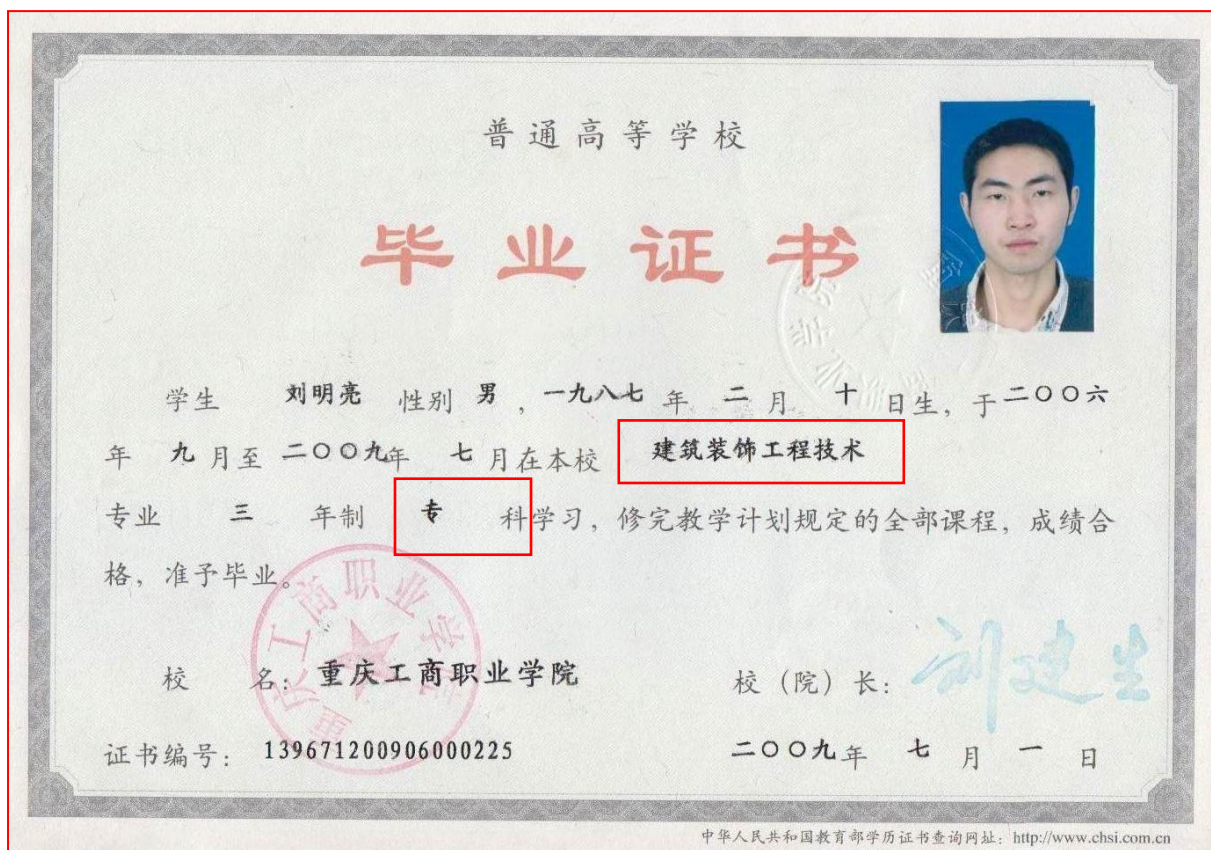 普通高等学校
毕业证书
学生 刘明亮 性别 男 , 一九八七 年 二 月 十 日生, 于 二〇〇六
年 九 月至 二〇〇九年 七 月在本校 建筑装饰工程技术
专业 三 年制 专 科学习, 修完教学计划规定的全部课程, 成绩合
格, 准予毕业。
重庆工商职业学院
校 名: 重庆工商职业学院 校（院）长: 刘建生
证书编号: 139671200906000225 二〇〇九年 七 月 一 日
中华人民共和国教育部学历证书查询网址: http://www.chsi.com.cn